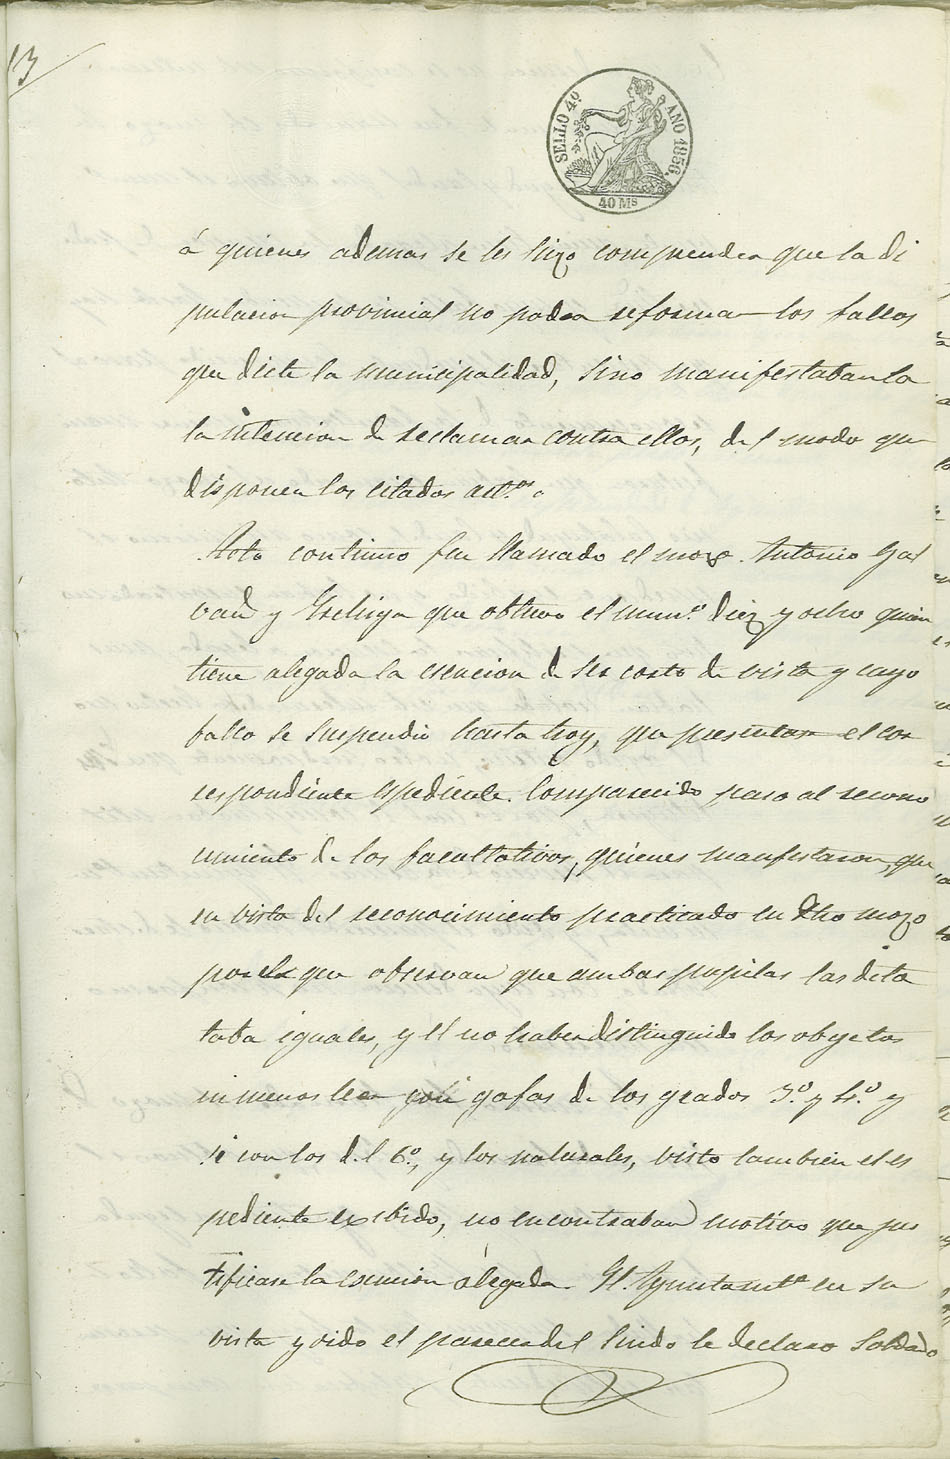 13
SELLO 4º AÑO 1856.
40 Ms
á quienes ademas se les hizo comprender que la di
putacion provincial no podia reformar los fallos
que dicte la municipalidad, sino manifestaban la
la intencion de reclamar contra ellos, del modo que
disponen los citados artos.
Acto continuo fue llamado el mozo Antonio Gal
van y que obtuvo el numo. diez y ocho quien
tiene alegada la esencion de ser corto de vista y cuyo
fallo se suspendió hasta hoy, que presentara el cor
respondiente espediente. Comparecido paso al recono
cimiento de los facultativos, quienes manifestaron, que
en vista del reconocimiento practicado en dho mozo
por el que observan que ambas pupilas las dila
taba iguales, y el no haber distinguido los obgetos
ni menos leer con gafas de los grados 3º. y 4º. y
si con los del 6º., y los naturales, visto tambien el es
pediente exibido, no encontraban motivo que jus
tificase la esencion alegada. El Ayuntamto. en su
vista y oido el parecer del Sindo le declaro Soldado